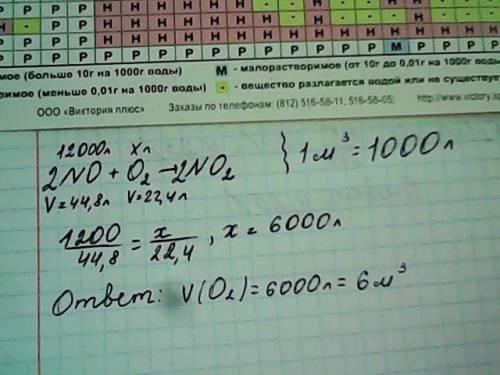 Н Н Н Н Н
Р Р Р Р Н Н Н Н Н Н Н Н Н - - Н -
Н - Р Р Н Н Н Н Н Н Н - - Н - -
Р Р Р Р Р Р Р Р Р Р Р Р Р Р Р
Р Р Р Р Р Р Р Р Р Р Р Р М Р Р Р Р
мое (больше 10г на 1000г воды) М - малорастворимое (от 10г до 0,01г на 1000г воды
римое (меньше 0,01г на 1000г воды) - - вещество разлагается водой или не существуе
ООО «Виктория плюс» Заказы по телефонам: (812) 516-58-11, 516-58-05; http://www.victory.sp
12000л x л
2NO + O₂ → 2NO₂ } 1 м³ = 1000л
V = 44,8л V = 22,4л
1200/44,8 = x/22,4 , x = 6000л
Ответ: V(O₂) = 6000л = 6 м³